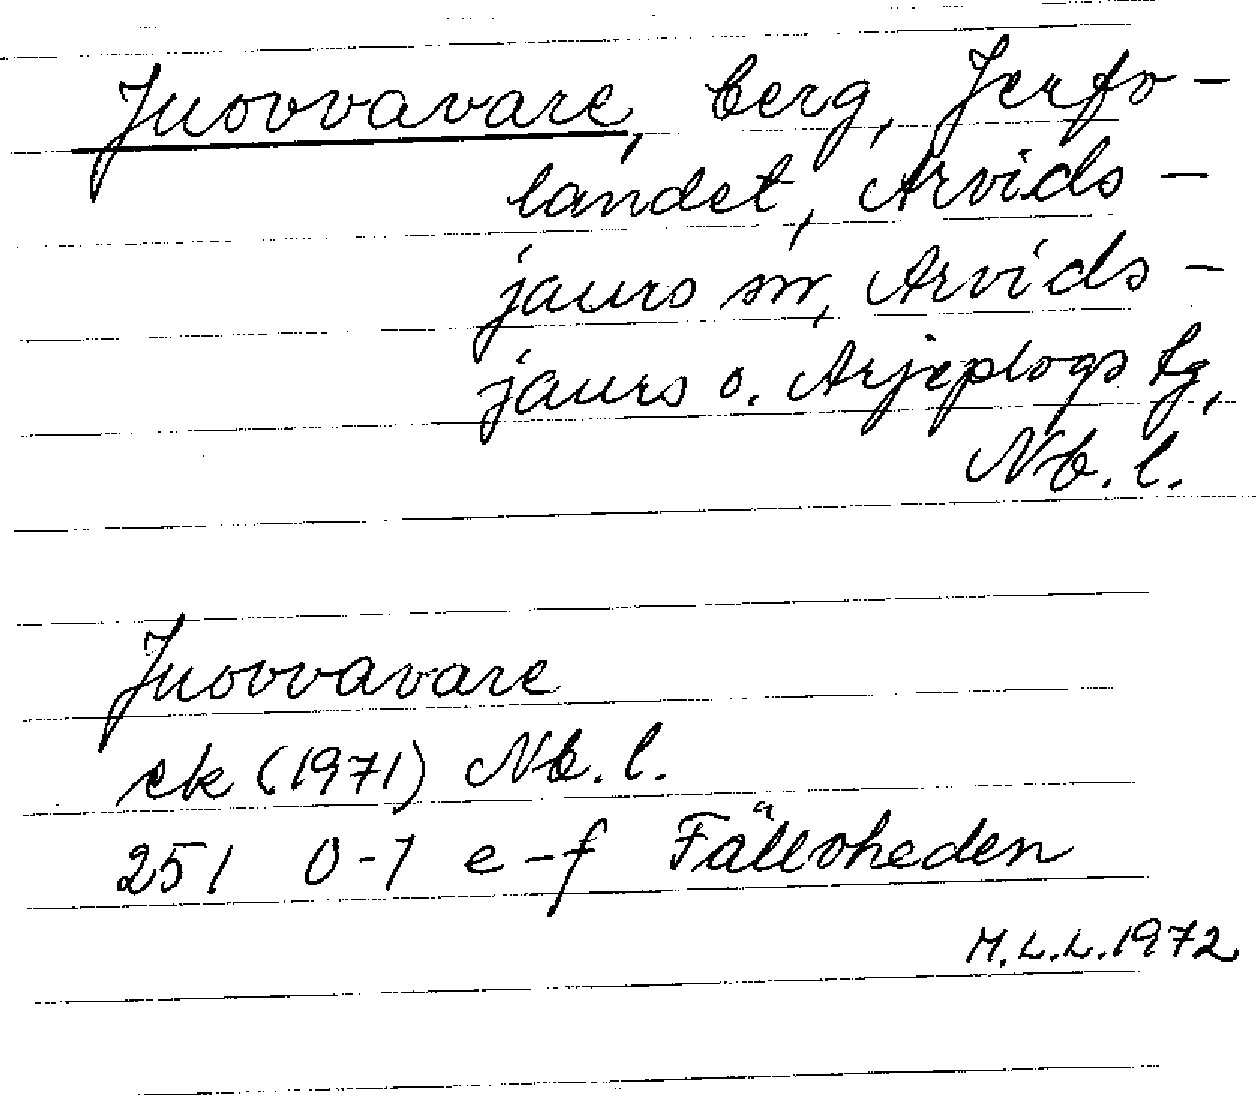 Juovvavare, berg, Jerfo-
landet, Arvids-
jaurs sn, Arvids-
jaurs o. Arjeplogs tg,
Nb. l.
Juovvavare
ek (1971) Nb. l.
251 0-1 e-f Fälloheden
M.L.L. 1972